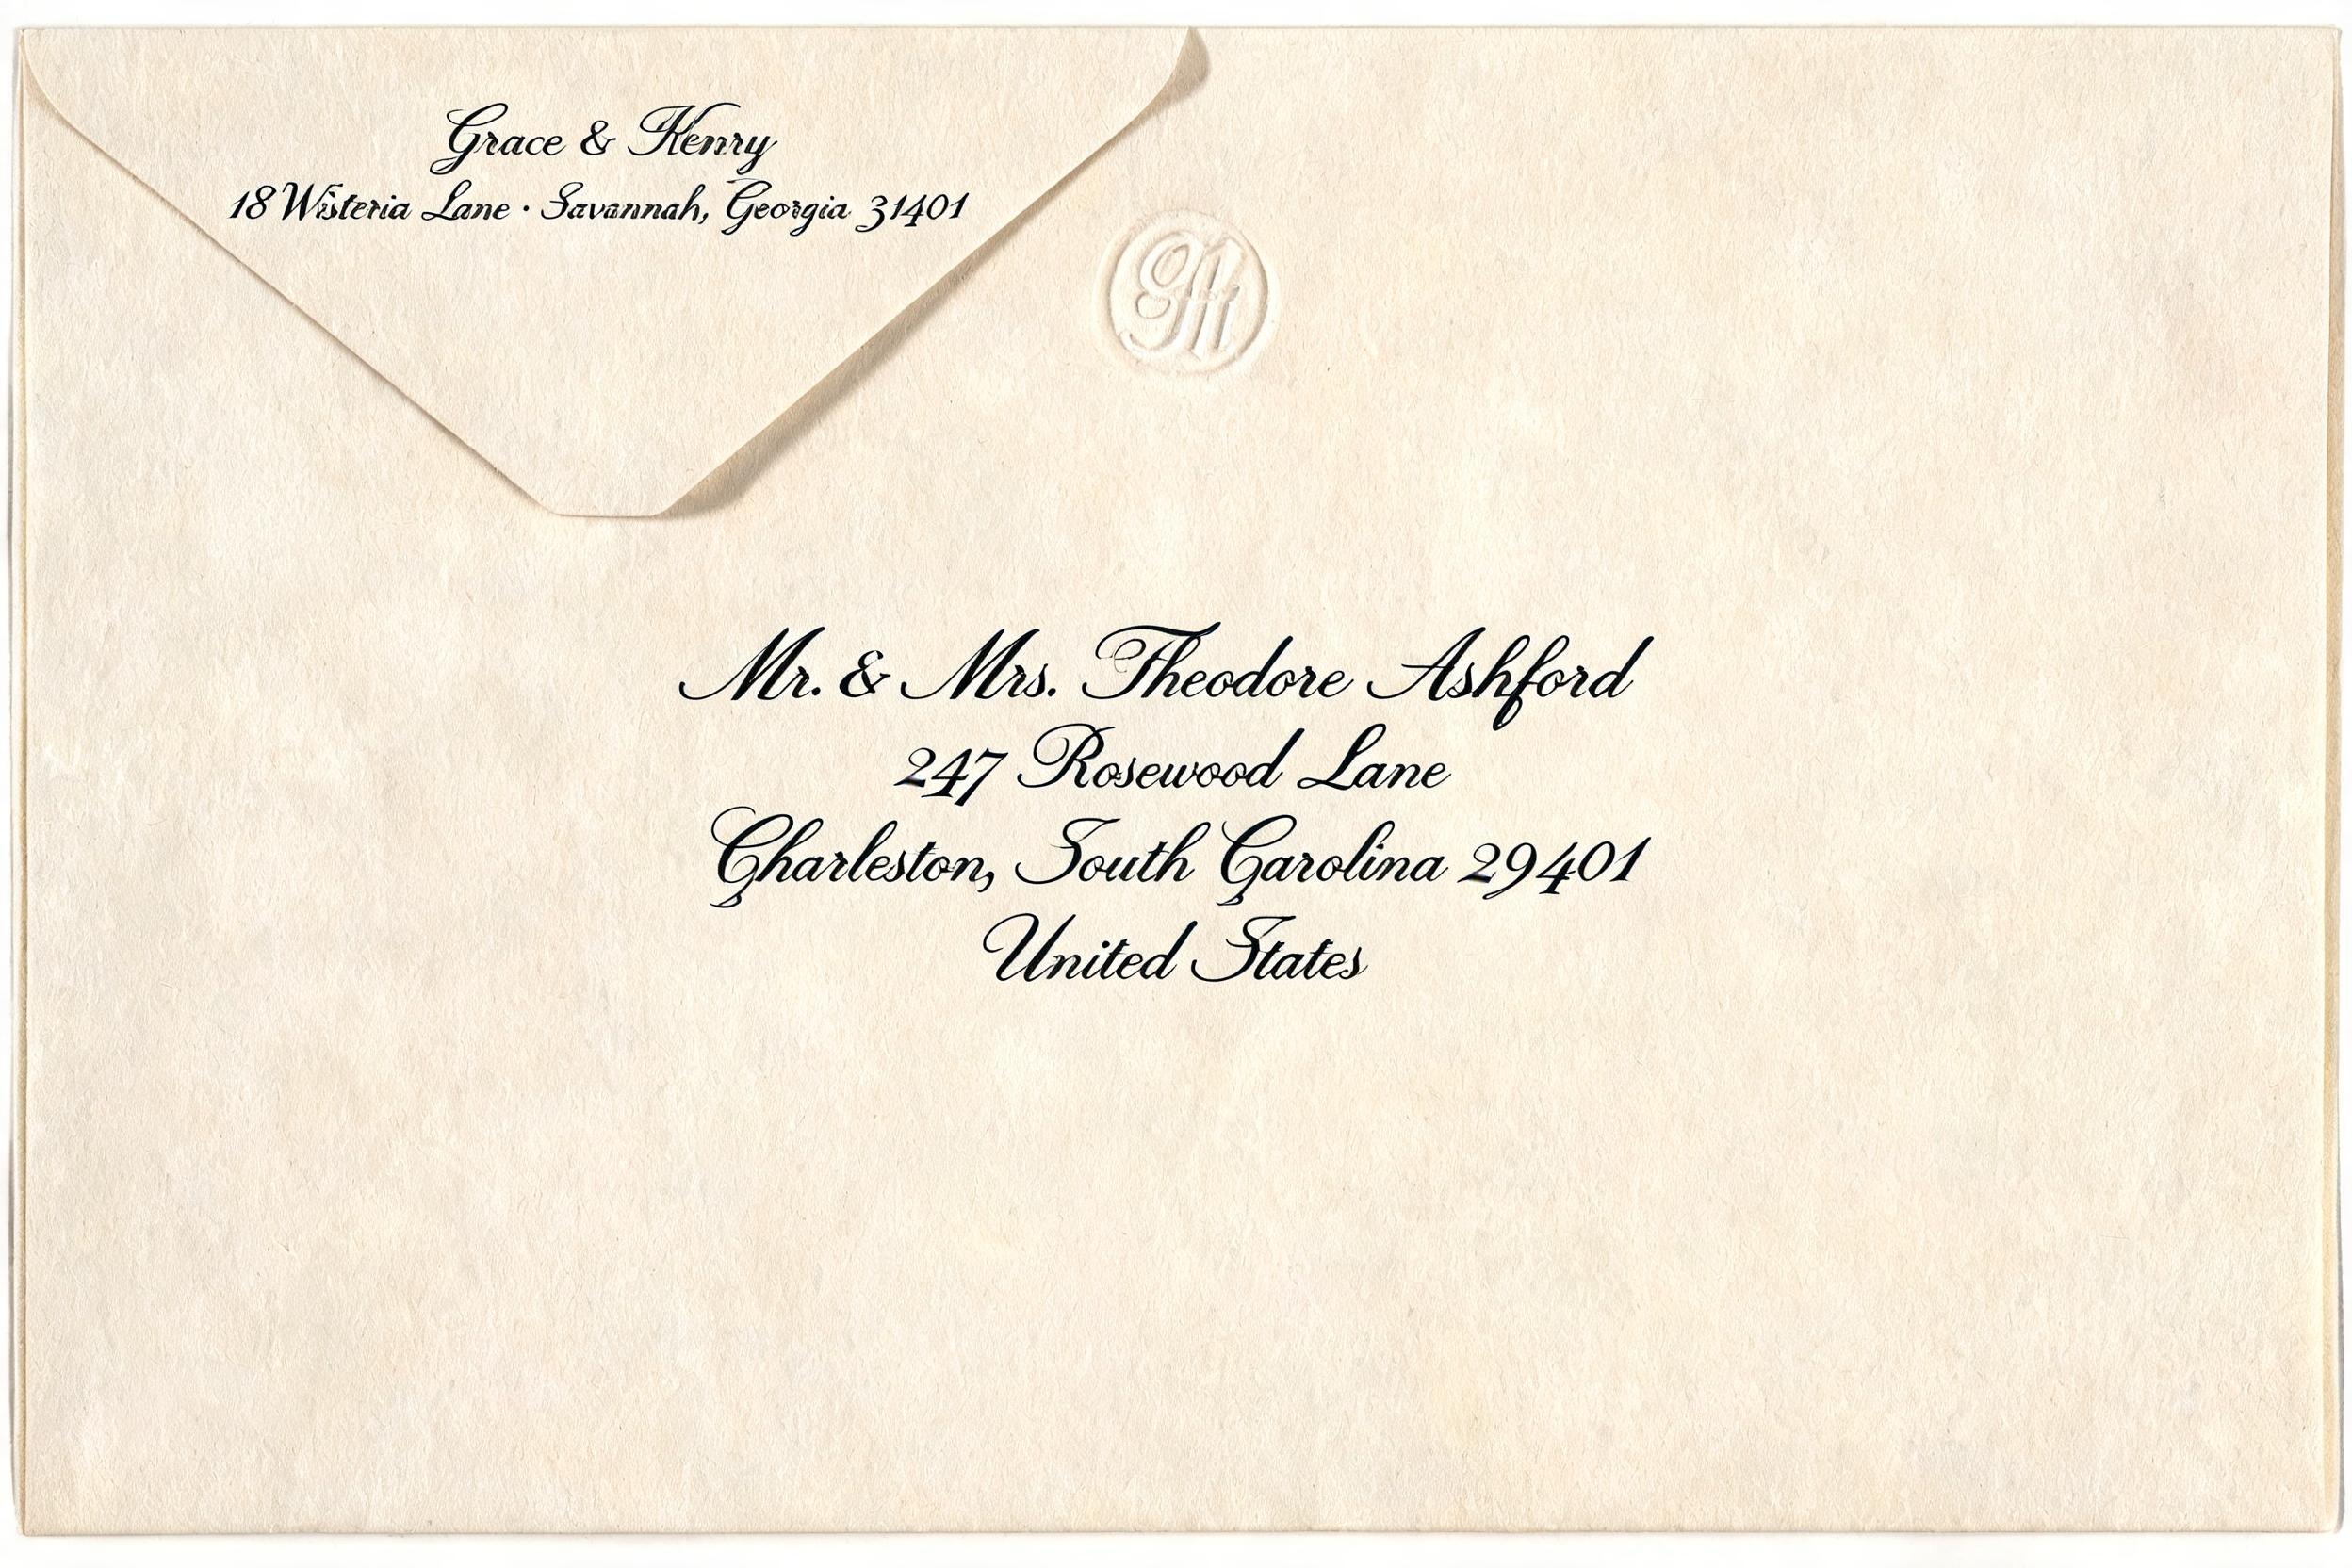 Grace & Henry
18 Wisteria Lane · Savannah, Georgia 31401
GH
Mr. & Mrs. Theodore Ashford
247 Rosewood Lane
Charleston, South Carolina 29401
United States